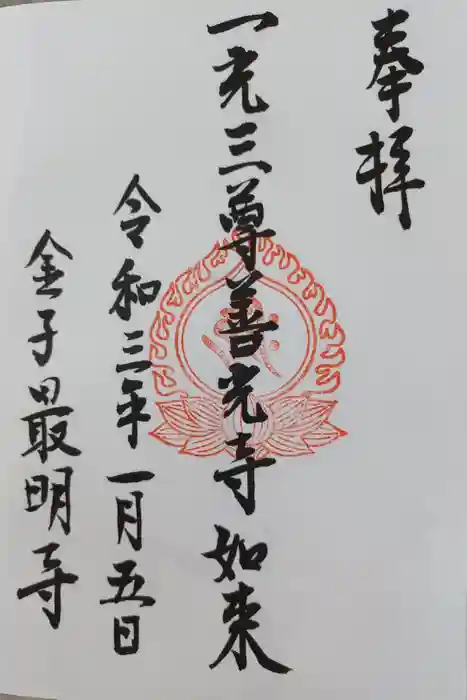 奉拝
一光三尊善光寺如来
令和三年一月五日
金子最明寺